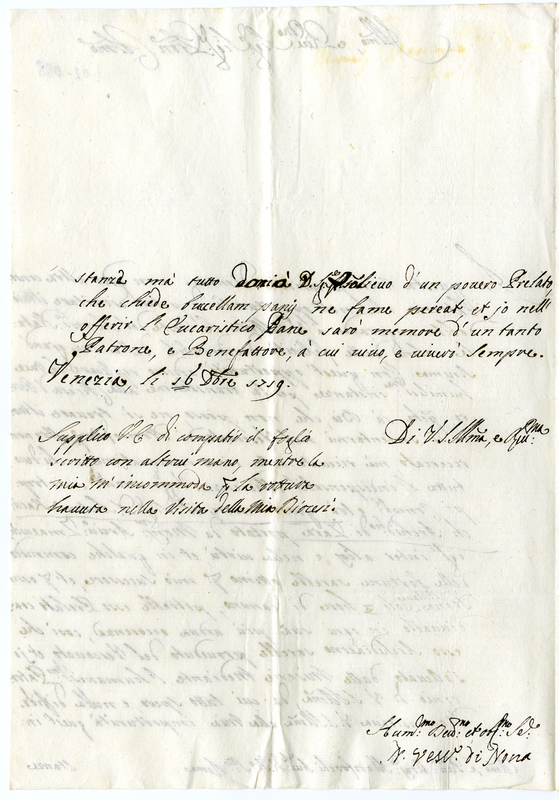 stanza mà tutto darià D. sollievo d'un povero Prelato,
che chiede bucellam panis ne fame pereat, et io nell'
offerir l'Eucaristico Pane sarò memore d'un tanto
Patrone, e Benefattore, à cui vivo, e viverò sempre.
Venezia, li 16 Xbre 1719.
Di V. S. Illma, e Rma
Supplico V. E. di compatir il foglio
scritto con altrui mano, mentre la
mia m'incommoda p la rottura
havuta nella Visita della mia Diocesi.
Hum:mo Devmo et obmo Se:
N. Vesc:o di Nona